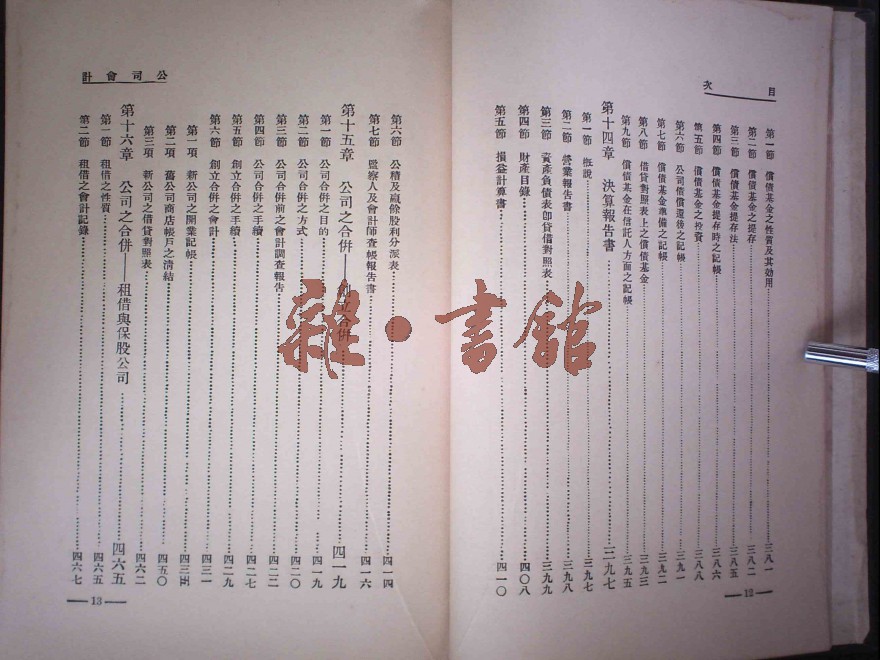 目次
第一節 償債基金之性質及其効用 三八一
第二節 償債基金之提存 三八二
第三節 償債基金提存法 三八五
第四節 償債基金提存時之記帳 三八六
第五節 償債基金之投資 三八八
第六節 公司債償還後之記帳 三九一
第七節 償債基金準備之記帳 三九二
第八節 借貸對照表上之償債基金 三九三
第九節 償債基金在信託人方面之記帳 三九五
第十四章 決算報告書 三九七
第一節 概說 三九七
第二節 營業報告書 三九八
第三節 資產負債表卽貸借對照表 三九九
第四節 財產目錄 四〇八
第五節 損益計算書 四一〇
—12—
公司會計
第六節 公積及贏餘股利分派表 四一四
第七節 監察人及會計師查帳報告書 四一六
第十五章 公司之合併——創立合併 四一九
第一節 公司合併之目的 四一九
第二節 公司合併之方式 四二〇
第三節 公司合併前之會計調查報告 四二三
第四節 公司合併之手續 四二七
第五節 創立合併之手續 四二九
第六節 創立合併之會計 四三一
第一項 新公司之開業記帳 四三五
第二項 舊公司商店帳戶之清結 四五〇
第三項 新公司之借貸對照表 四六二
第十六章 公司之合併——租借與保股公司 四六五
第一節 租借之性質 四六五
第二節 租借之會計記錄 四六七
—13—
雜·書館